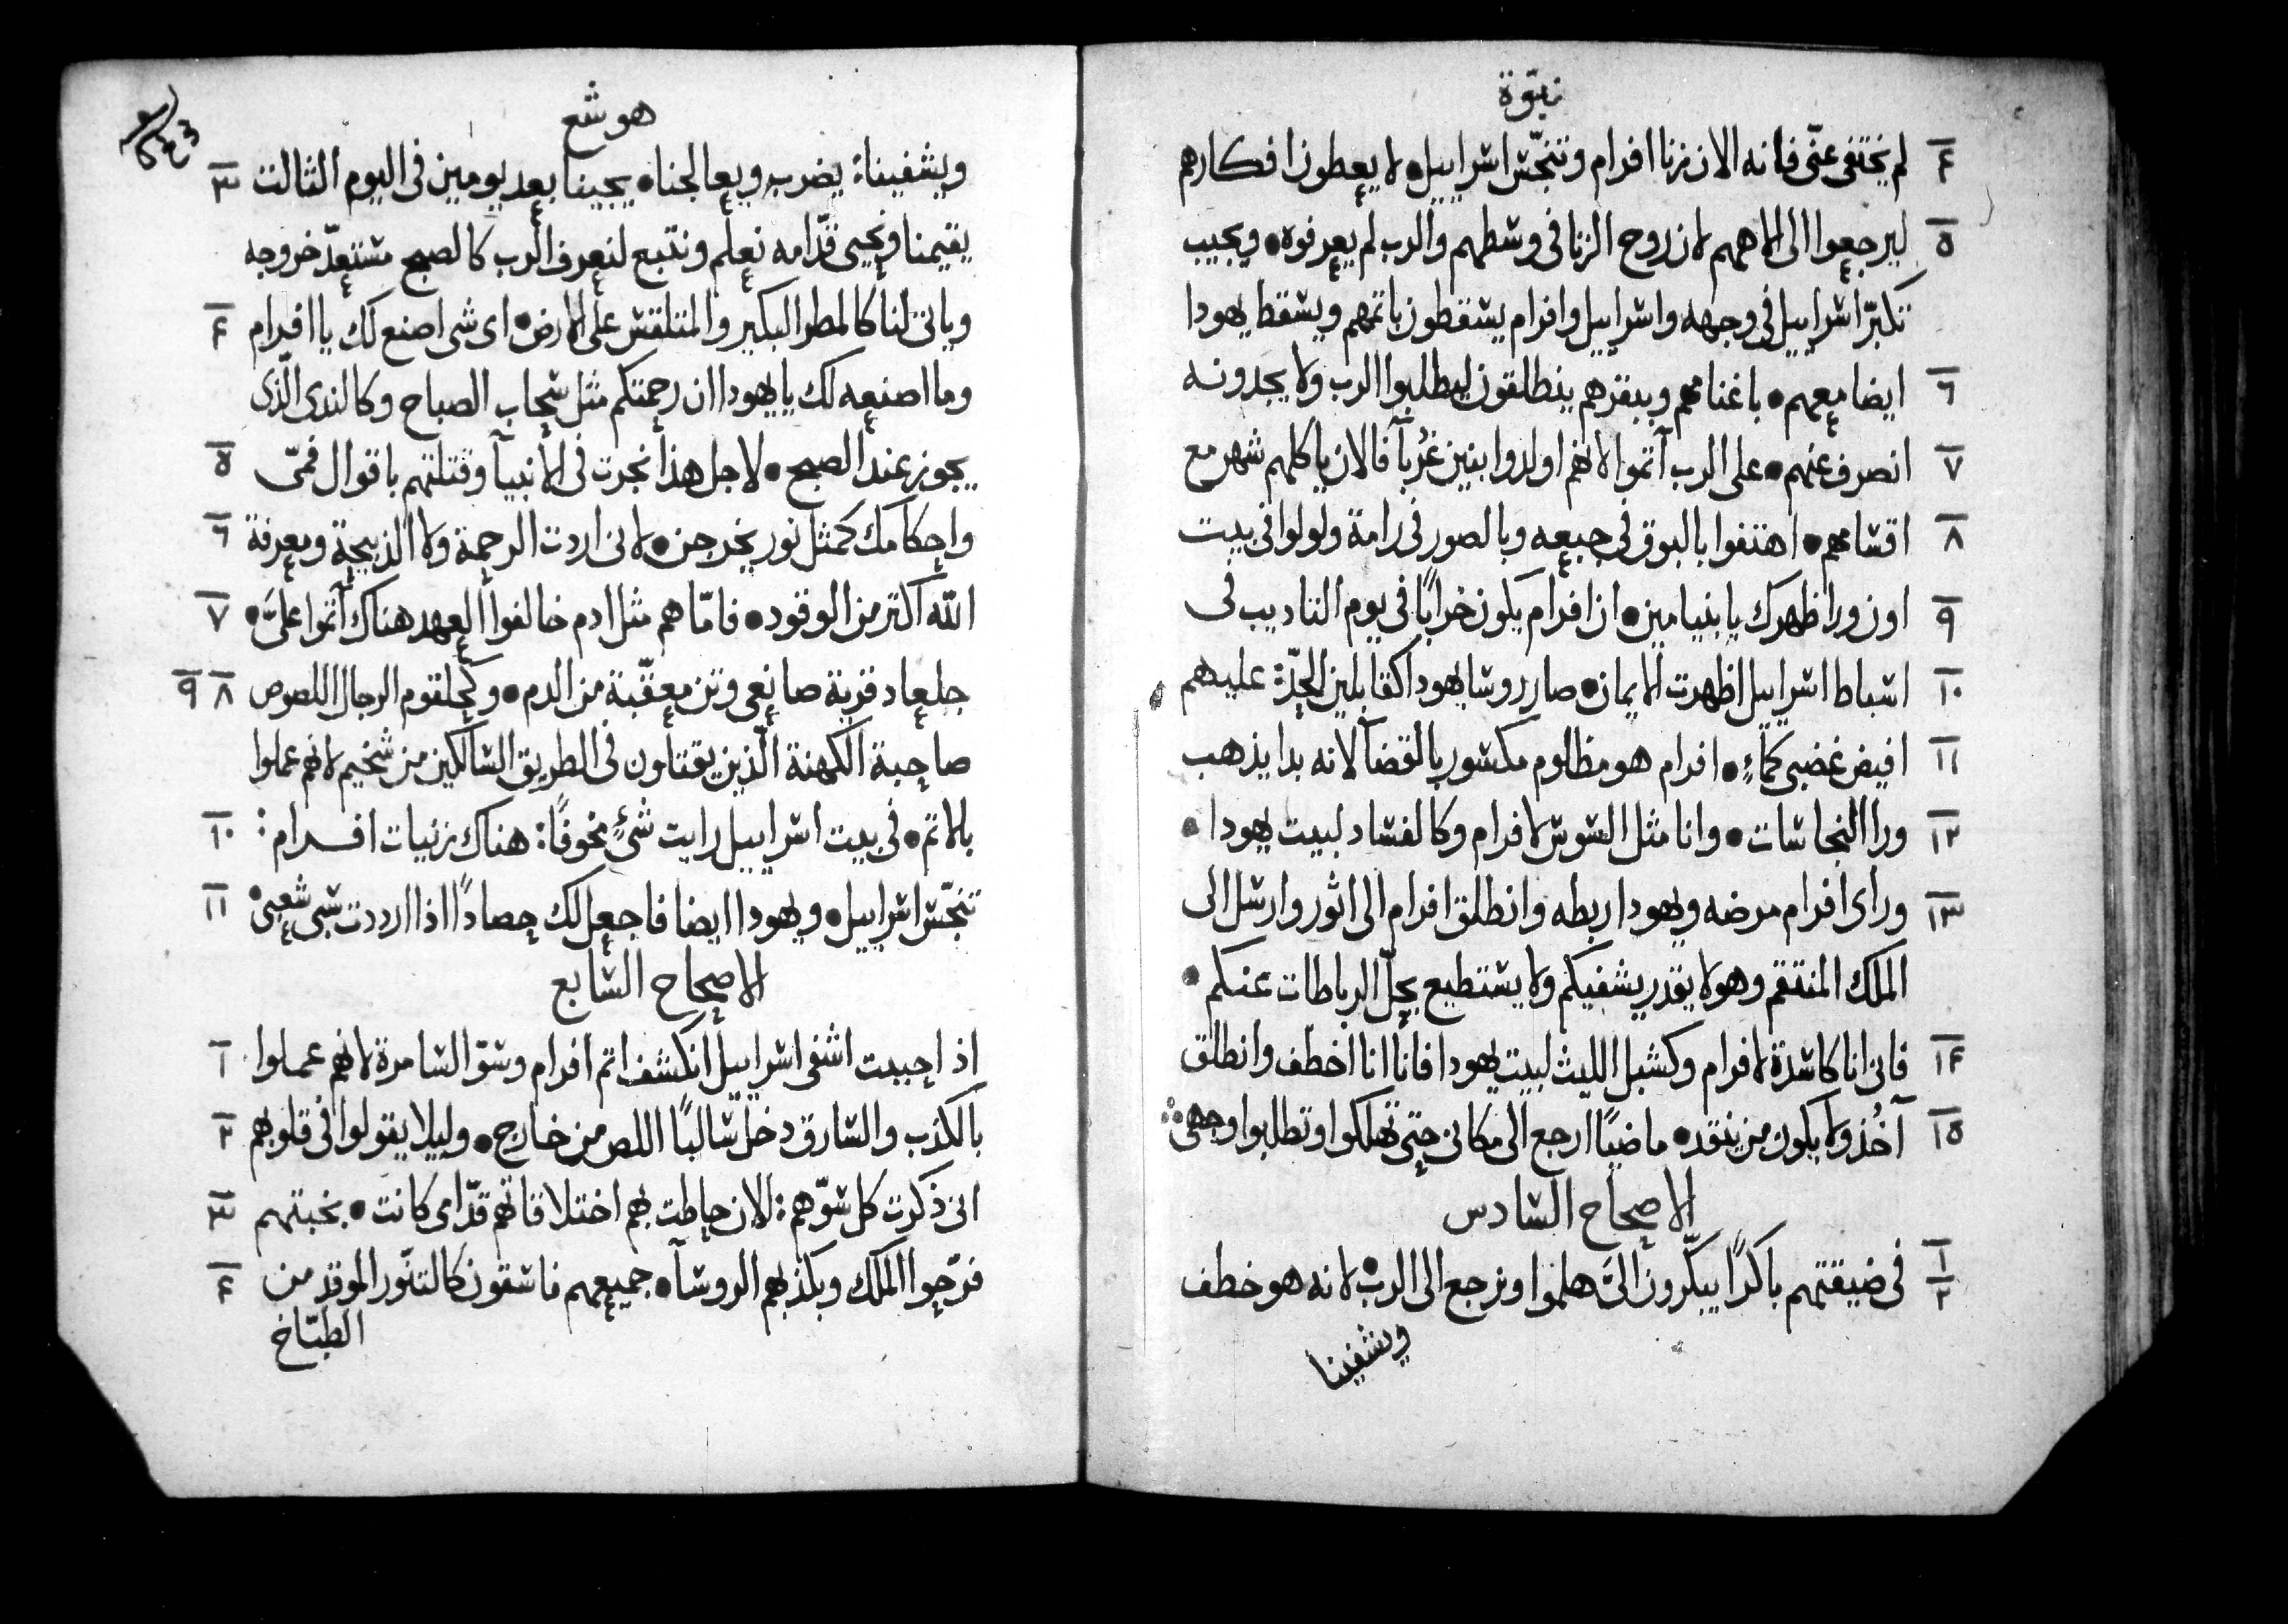 نبوّة
٤ لم يختفى عنّى فانه الان زنا افرام وتنجّس اسراييل • لا يعطون افكارهم
٥ ليرجعوا الى الاههم لان روح الزنا فى وسطهم والرب لم يعرفوه • ويجيب
تكبّر اسراييل فى وجهه واسراييل وافرام يسقطون باثمهم ويسقط يهودا
٦ ايضا معهم • باغنامهم وببقرهم ينطلقون ليطلبوا الرب ولا يجدونه
٧ انصرف عنهم • على الرب آثموا لانهم اولدوا بنين غُربآ فالان ياكلهم شهر مع
٨ اقسامهم • اهتفوا بالبوق فى جبعه وبالصور فى رامة ولولوا فى بيت
٩ اون ورا ظهرك يا بنيامين • ان افرام يكون خرابًا فى يوم التاديب فى
١٠ اسباط اسراييل اظهرت الايمان • صار روسا يهودا كقابلين الحدّ: عليهم
١١ افيض غضبى كمآءٍ • افرام هو مظلوم مكسور بالقضآ لانه بدا يذهب
١٢ ورا النجاسات • وانا مثل السوس لافرام وكالفساد لبيت يهودا •
١٣ وراى افرام مرضه ويهودا ربطه وانطلق افرام الى اثور وارسل الى
الملك المنتقم وهو لا يقدر يشفيكم ولا يستطيع يحلّ الرباطات عنكم •
١٤ فانى انا كاسدة لافرام وكشبل الليث لبيت يهودا فانا انا اخطف وانطلق
١٥ آخُذ ولا يكون من ينقد • ماضيًا ارجع الى مكانى حتى تهلكوا وتطلبوا وجهى
الاصحاح السادس
١ ٢ فى ضيقتهم باكرًا يبكّرون الىَّ هلموا ونرجع الى الرب • لانه هو خطف
ويشفينا
هوشع
ويشفينا: يضرب ويعالجنا • يحيينا بعد يومين فى اليوم الثالث ٣
يقيمنا ونحيى قدّامه نعلم ونتبع لنعرف الرب كالصبح مستعدّ خروجه
وياتى لنا كالمطر البكير والمتلقس على الارض • اى شى اصنع لك يا افرام ٤
وما اصنعه لك يا يهودا ان رحمتكم مثل سحاب الصباح وكالندى الّذى
يجوز عند الصبح • لاجل هذا نجرت فى الانبيآ وقتلتهم باقوال فمىّ ٥
واحكامك كمثل نور يخرجن • لانى اردت الرحمة ولا الذبيحة ومعرفة ٦
الله اكثر من الوقود • فامّا هم مثل ادم خالفوا العهد هناك آثموا علىَّ • ٧
جلعاد قرية صانعى وثن معقّبة من الدم • وكحلقوم الرجال اللصوص ٨ ٩
صاحبة الكهنة الّذين يقتلون فى الطريق السالكين من شخيم لانهم عملوا
بالاثم • فى بيت اسراييل رايت شىءٍ مخوفًا: هناك زنيات افرام: ١٠
تنجّس اسراييل • ويهودا ايضا فاجعل لك حصادًا اذا ارددت سبى شعبى ١١
الاصحاح السّابع
اذ احببت اشفى اسراييل انكشف اثم افرام وسوّ السامرة لانهم عملوا ١
بالكذب والسّارق دخل سالبًا اللص من خارج • وليلا يقولوا فى قلوبهم ٢
انى ذكرت كل سوّهم: الان حاطت بهم اختلاقاتهم قدّامى كانت • بخبثهم ٣
فرّحوا الملك وبكذبهم الروسآ • جميعهم فاسقون كالتنّور الموقد من ٤
الطبّاخ